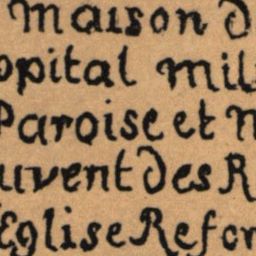 maison d
opital mil
Paroise et n
uvent des R
Eglise Refor